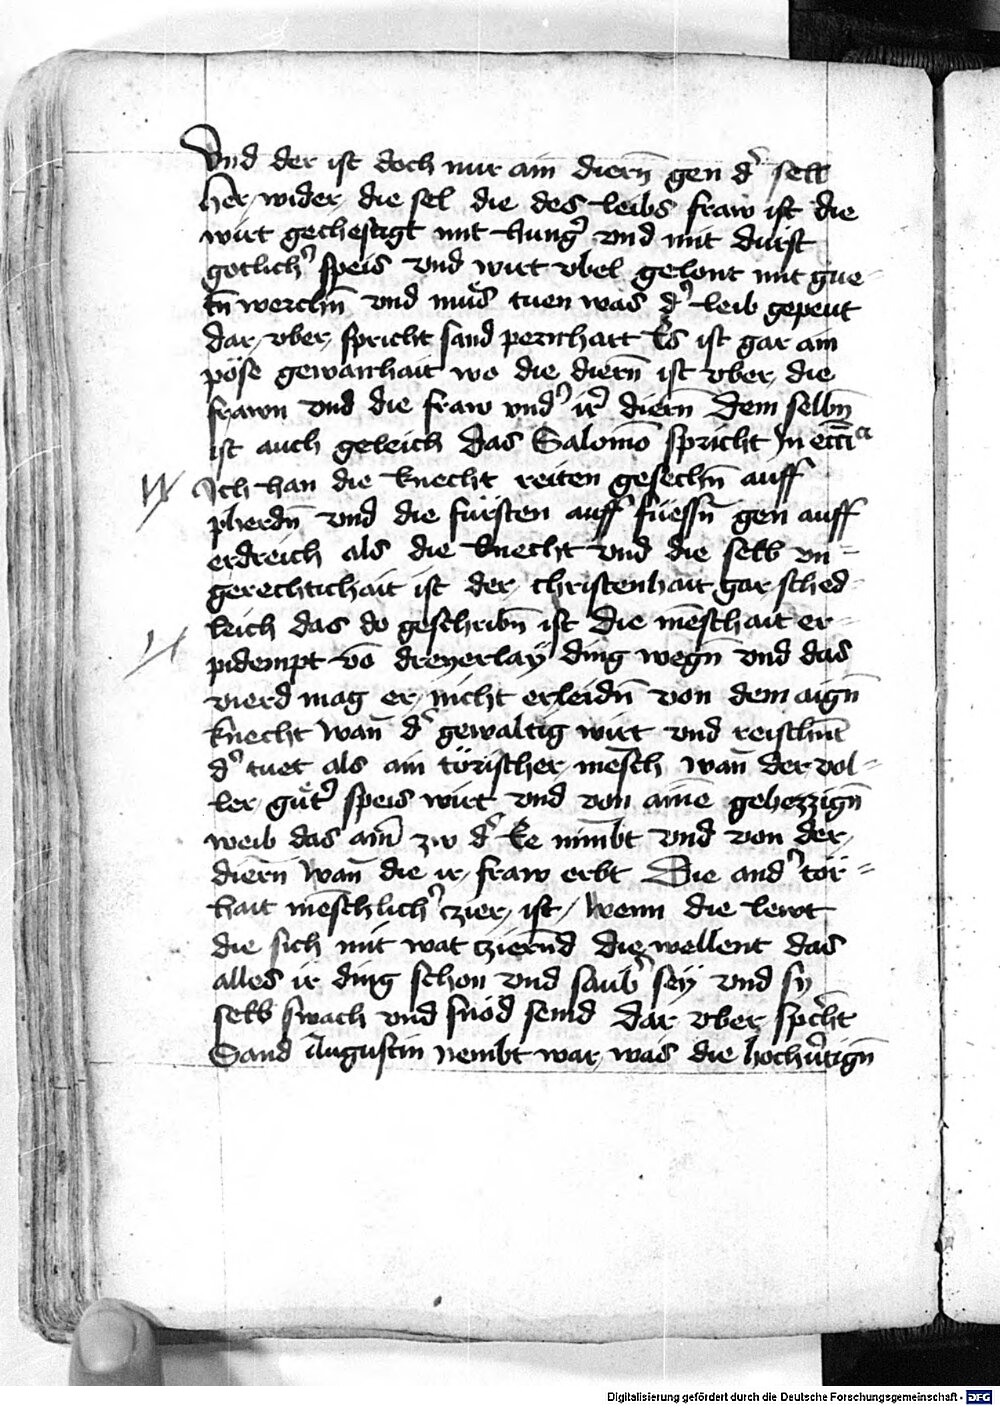 Vnd der ist doch nur ain diern̄ gen d' sell
Her wider die sel die des leibs fraw ist die
wirt gechestigt mit hung' vnd mit durst
gotlich' speis vnd wirt vbel gelont mit gue-
tn̄ werchn̄ vnd mu͑s tuen was d' leib gepeut
dar vber spricht sand pernhart Es ist gar ain
pöse gewanhait wo die diern̄ ist vber die
frawn vnd die fraw vnd' ir' diern̄ Dem selbn̄
ist auch geleich das Salomō spricht jn ecci͞a
Ich han die knecht reiten gesechn̄ auff
pherdn̄ vnd die fürsten auff füessn̄ gen auff
erdreich als die knecht vnd die selb vn=
gerechtichait ist der christenhait gar sched-
leich das do geschribn̄ ist die mēschait er-
pidempt vō dreyerlaÿ ding wegn̄ vnd das
vierd mag er nicht erleidn̄ von dem aign̄
knecht wan̄ d' gewaltig wirt vnd reischn̄t
d' tuet als ain törischer mēsch wan̄ der vol=
ler gu͑t' speis wirt vnd von ainē gehezzign̄
weib das ain̄ zw d' Ee nimbt vnd von der
diern̄ wan̄ die ir fraw erbt Die and' tör=
hait mēschlich' czier ist wenn die lewt
die sich mit wat ziern̄d die wellent das
alles ir ding schon vnd saub' seÿ vnd sy
selb swach vnd snöd seind dar vber sp'cht
Sand Augustin nembt war was die hochv'tign̄
Digitalisierung gefördert durch die Deutsche Forschungsgemeinschaft - DFG